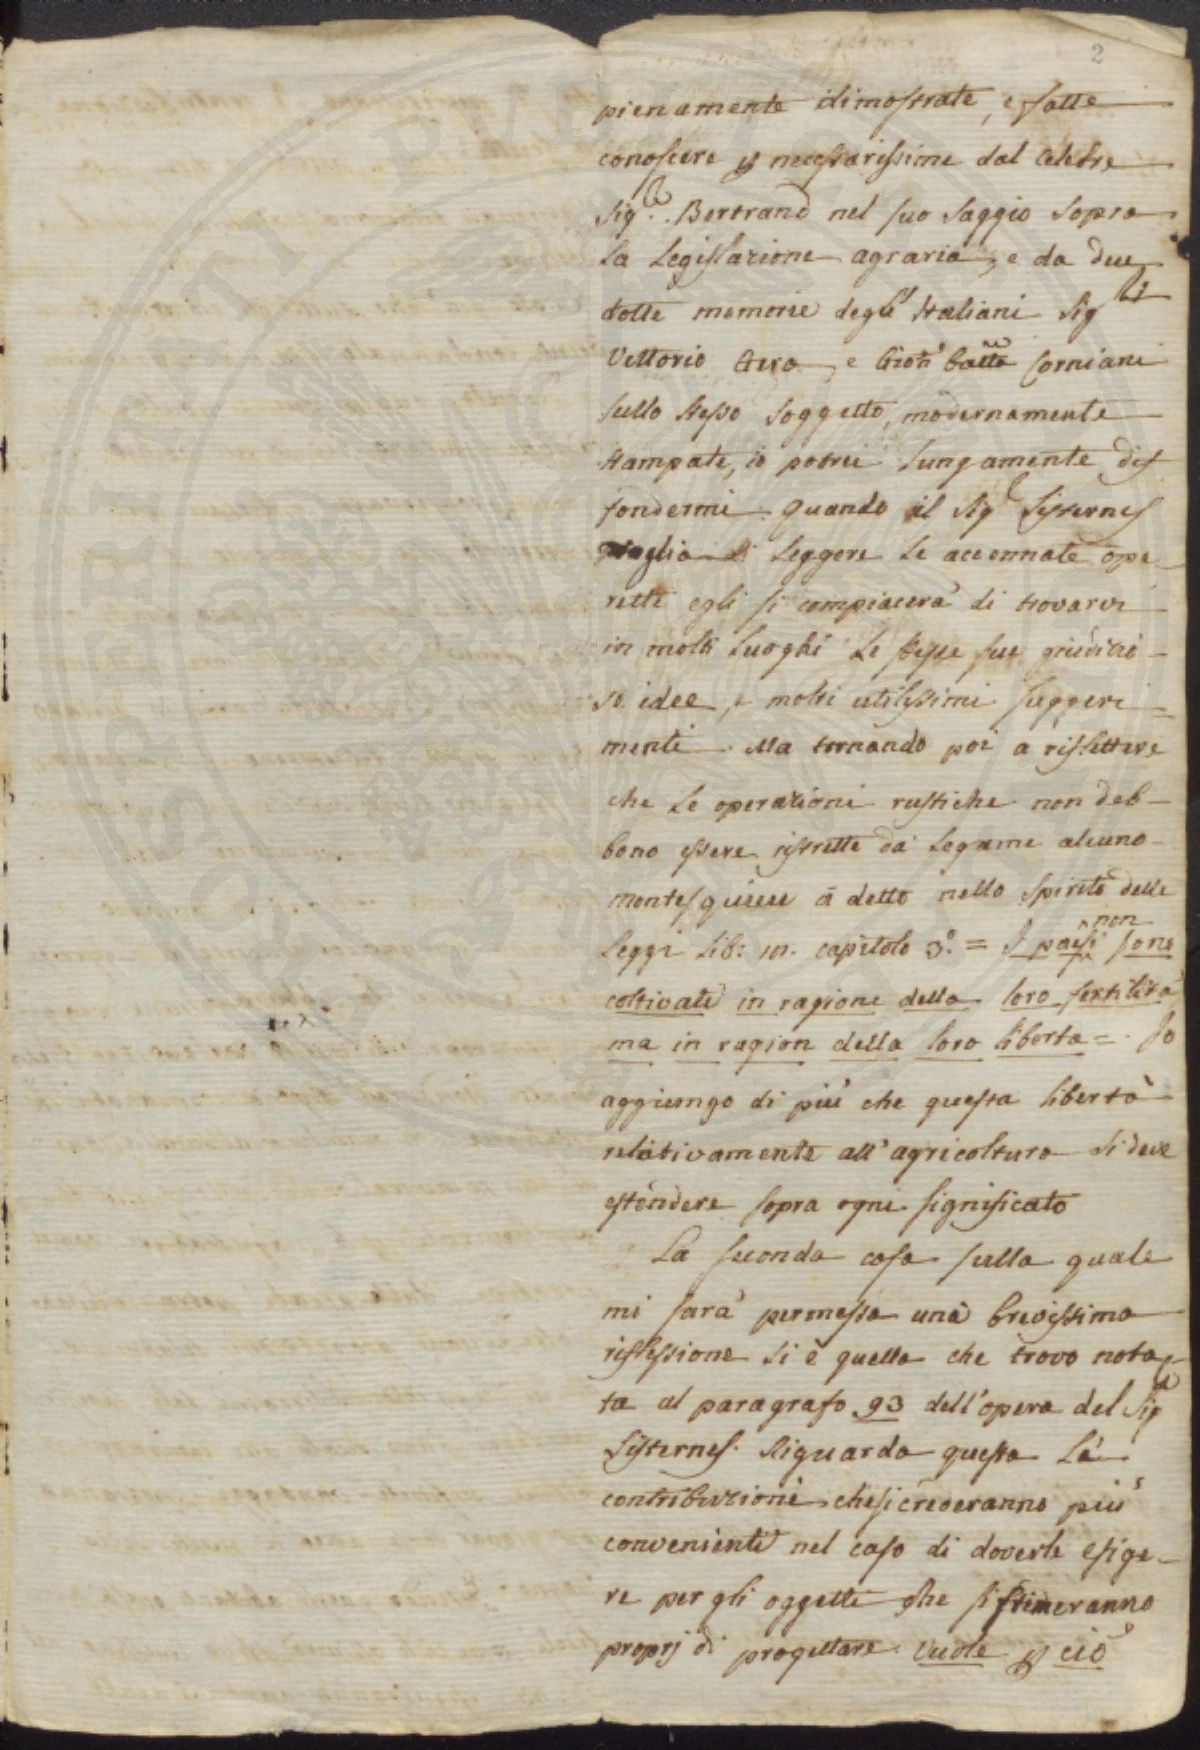 2
pienamente dimostrate, e fatte
conoscere p necessarissime dal celebre
Sig.e Bertrand nel suo Saggio sopra
la Legislazione agraria, e da due
dotte memorie degl' Italiani Sig.ri
Vettorio e Gion' Batta Corniani
sullo stesso soggetto, modernamente
stampate, io potrei lungamente dif
fondermi. Quando il Sig.e Sisternes
voglia di leggere le accennate ope-
rette egli si compiacerà di trovarvi
in molti luoghi le stesse sue giudizio-
se idee, e molti utilissimi suggeri-
menti. Ma tornando poi a riflettere
che le operazioni rustiche non deb-
bono essere ristrette da legame alcuno
Montesquieu à detto nello Spirito delle
Leggi Lib: capitolo 3.o = I paesi non sono
coltivati in ragione della loro fertilità
ma in ragion della loro libertà =. Io
aggiungo di più che questa libertà
relativamente all'agricoltura si deve
estendere sopra ogni significato
La seconda cosa sulla quale
mi sarà permessa una brevissima
riflessione si è quella che trovo nota-
ta al paragrafo 93 dell'opera del Sig.e
Sisternes. Riguarda questa la
contribuzione che si crederanno più
convenienti nel caso di doverle esige-
re per gli oggetti che si stimeranno
proprj di progettare. Vuole p ciò
PUBLICI